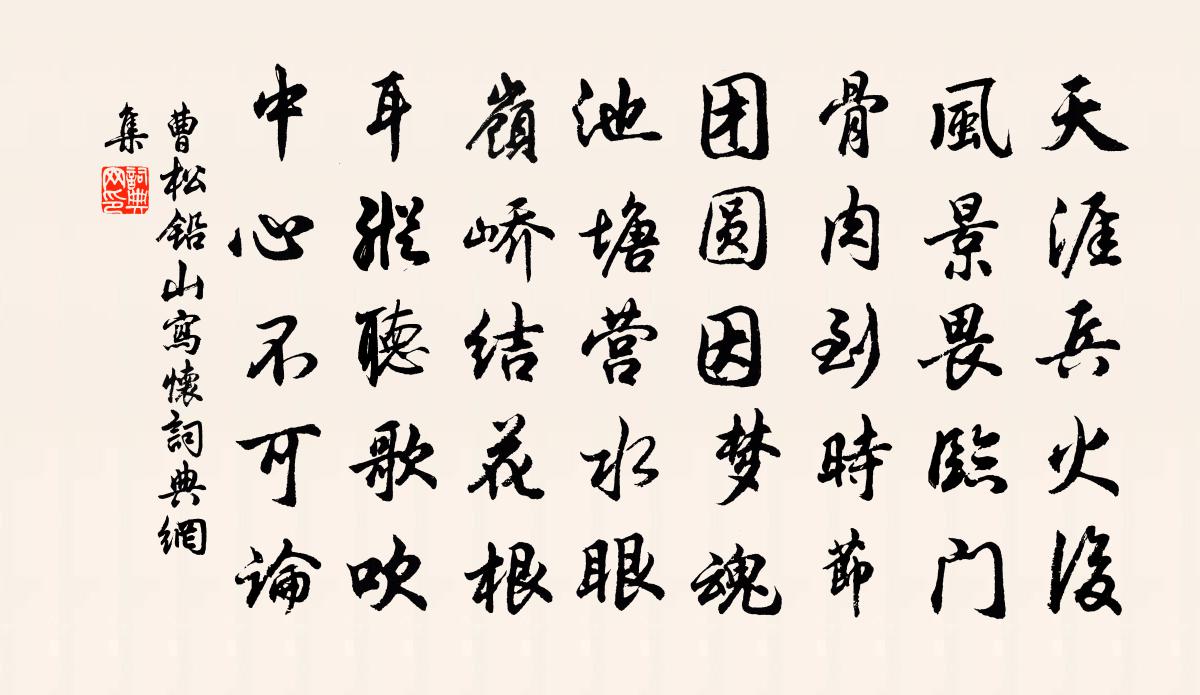 天涯兵火後
風景畏臨门
骨肉到時節
团圆因梦魂
池塘营水眼
嶺峤结花根
耳縱聽歌吹
中心不可論
曹松鉛山寫懷詞典網
集
詞典
网印